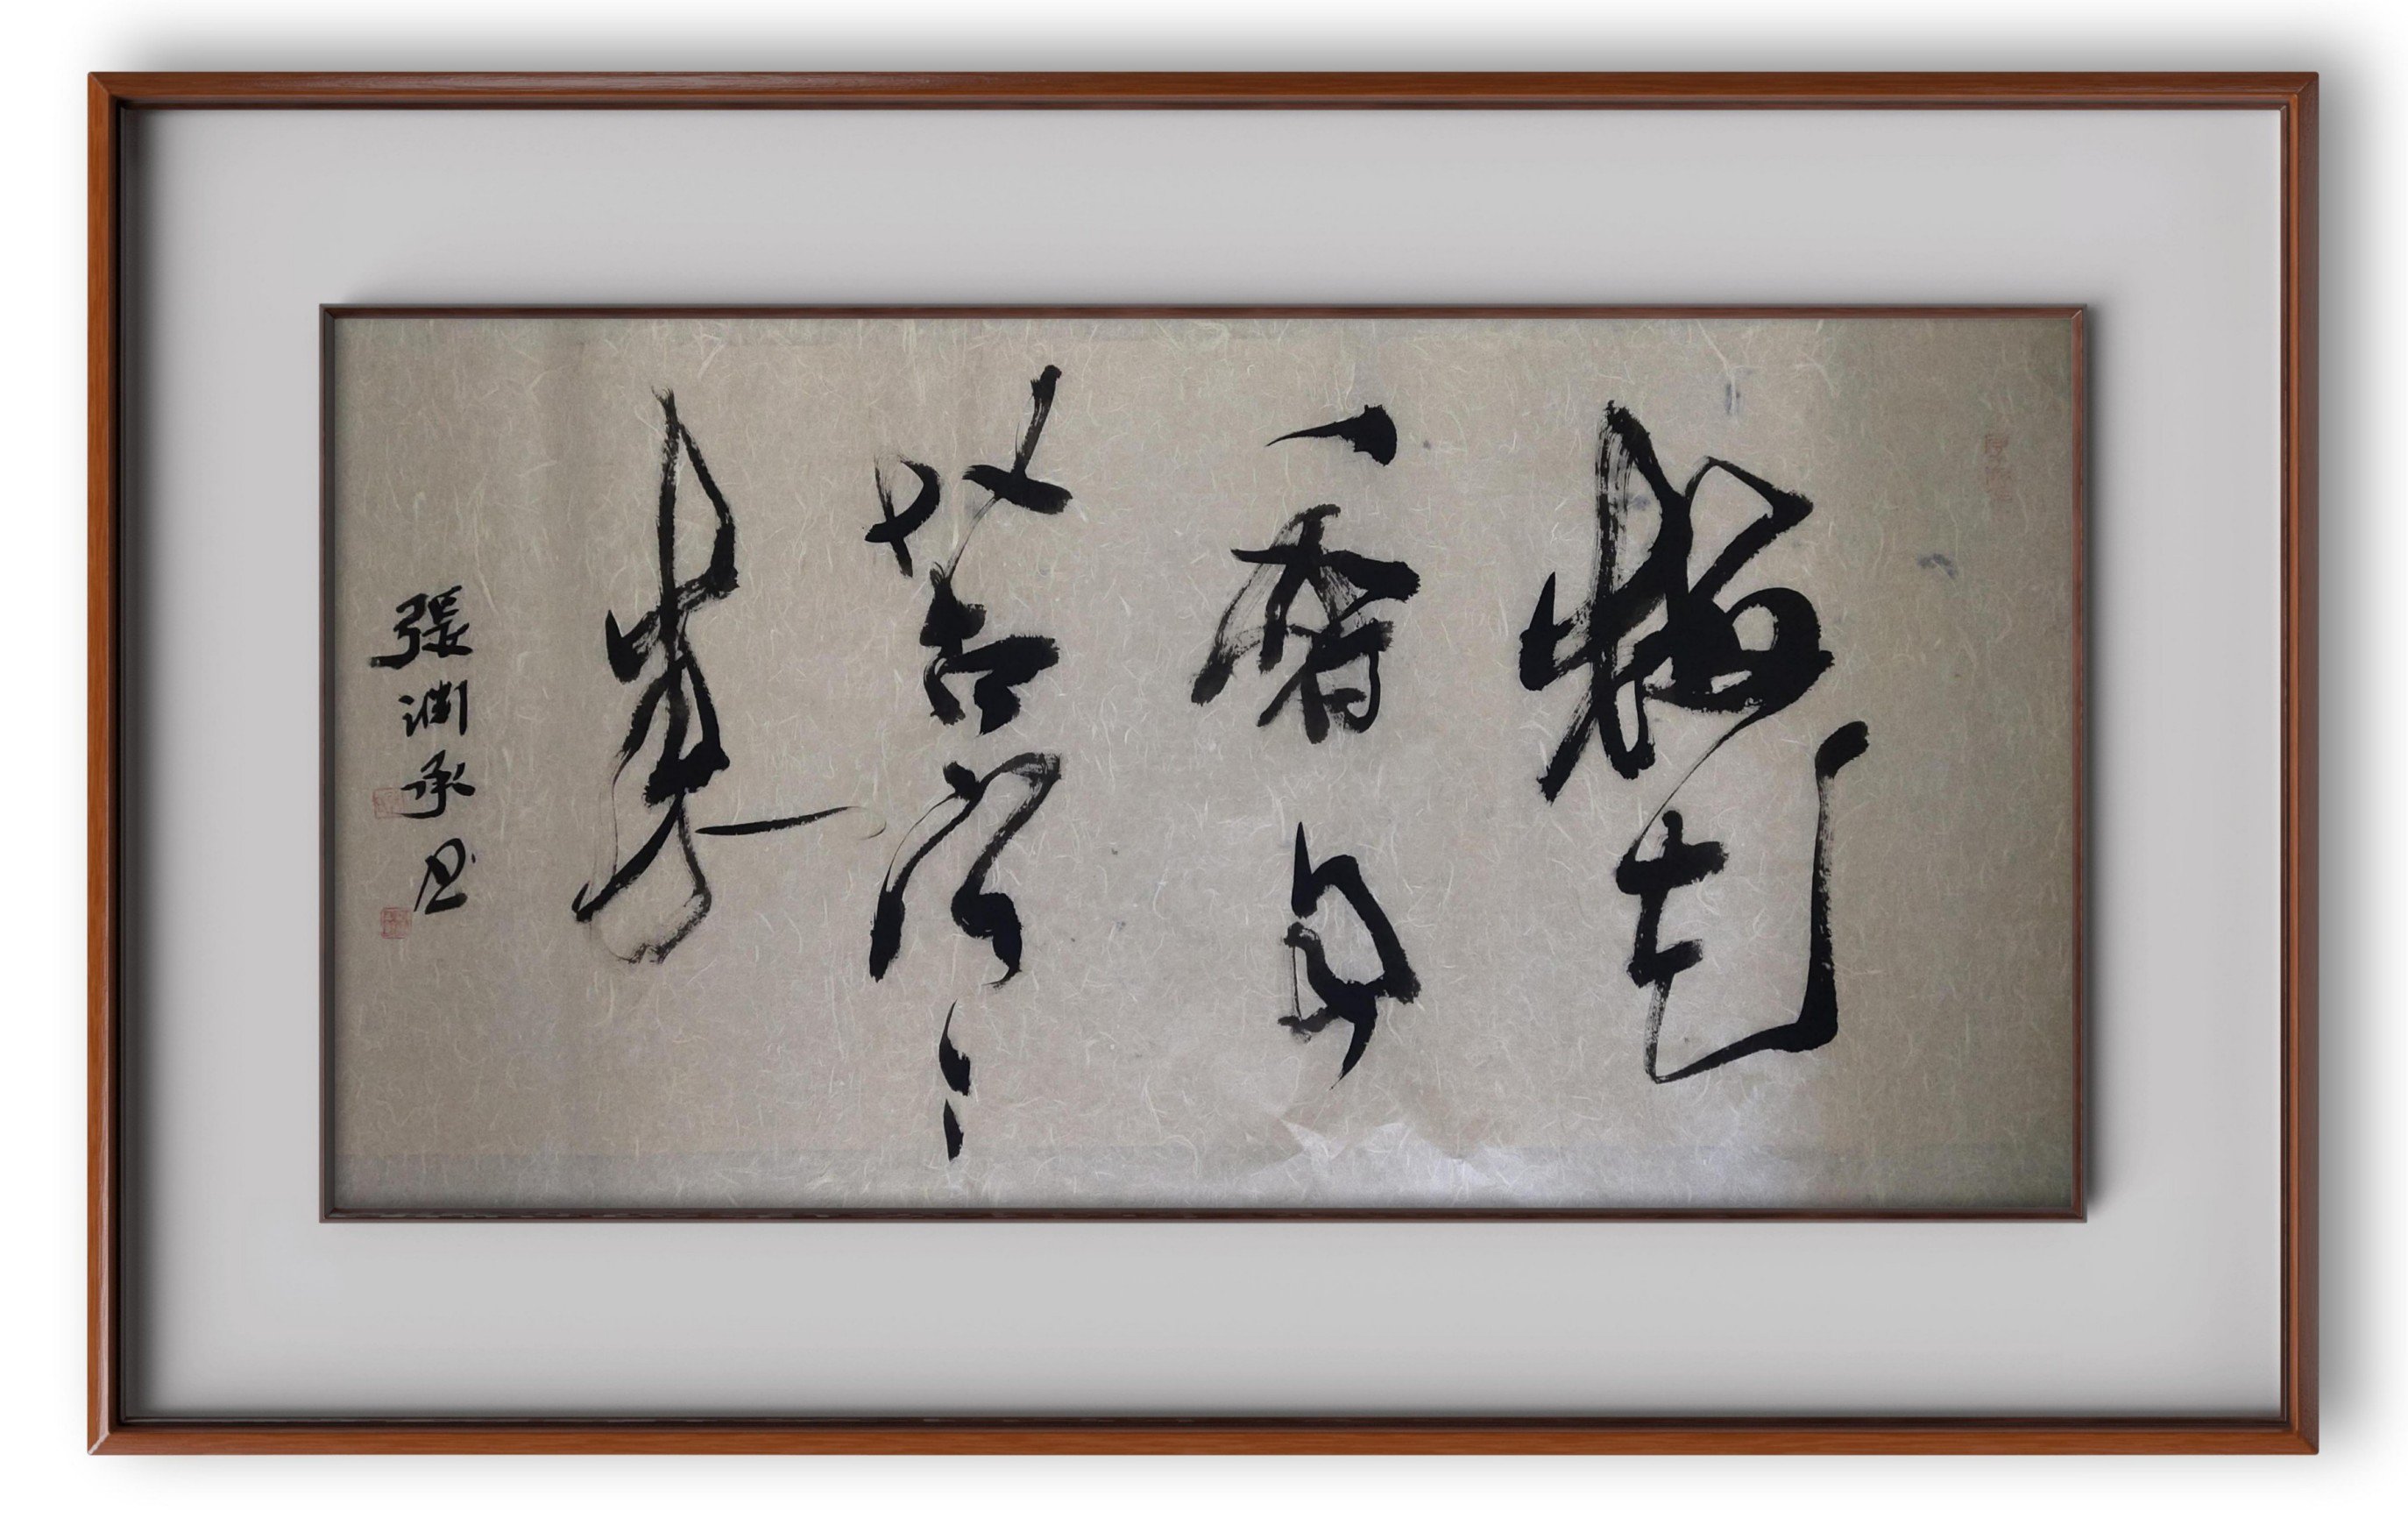 梅花
香自
苦寒
来
張渊承书